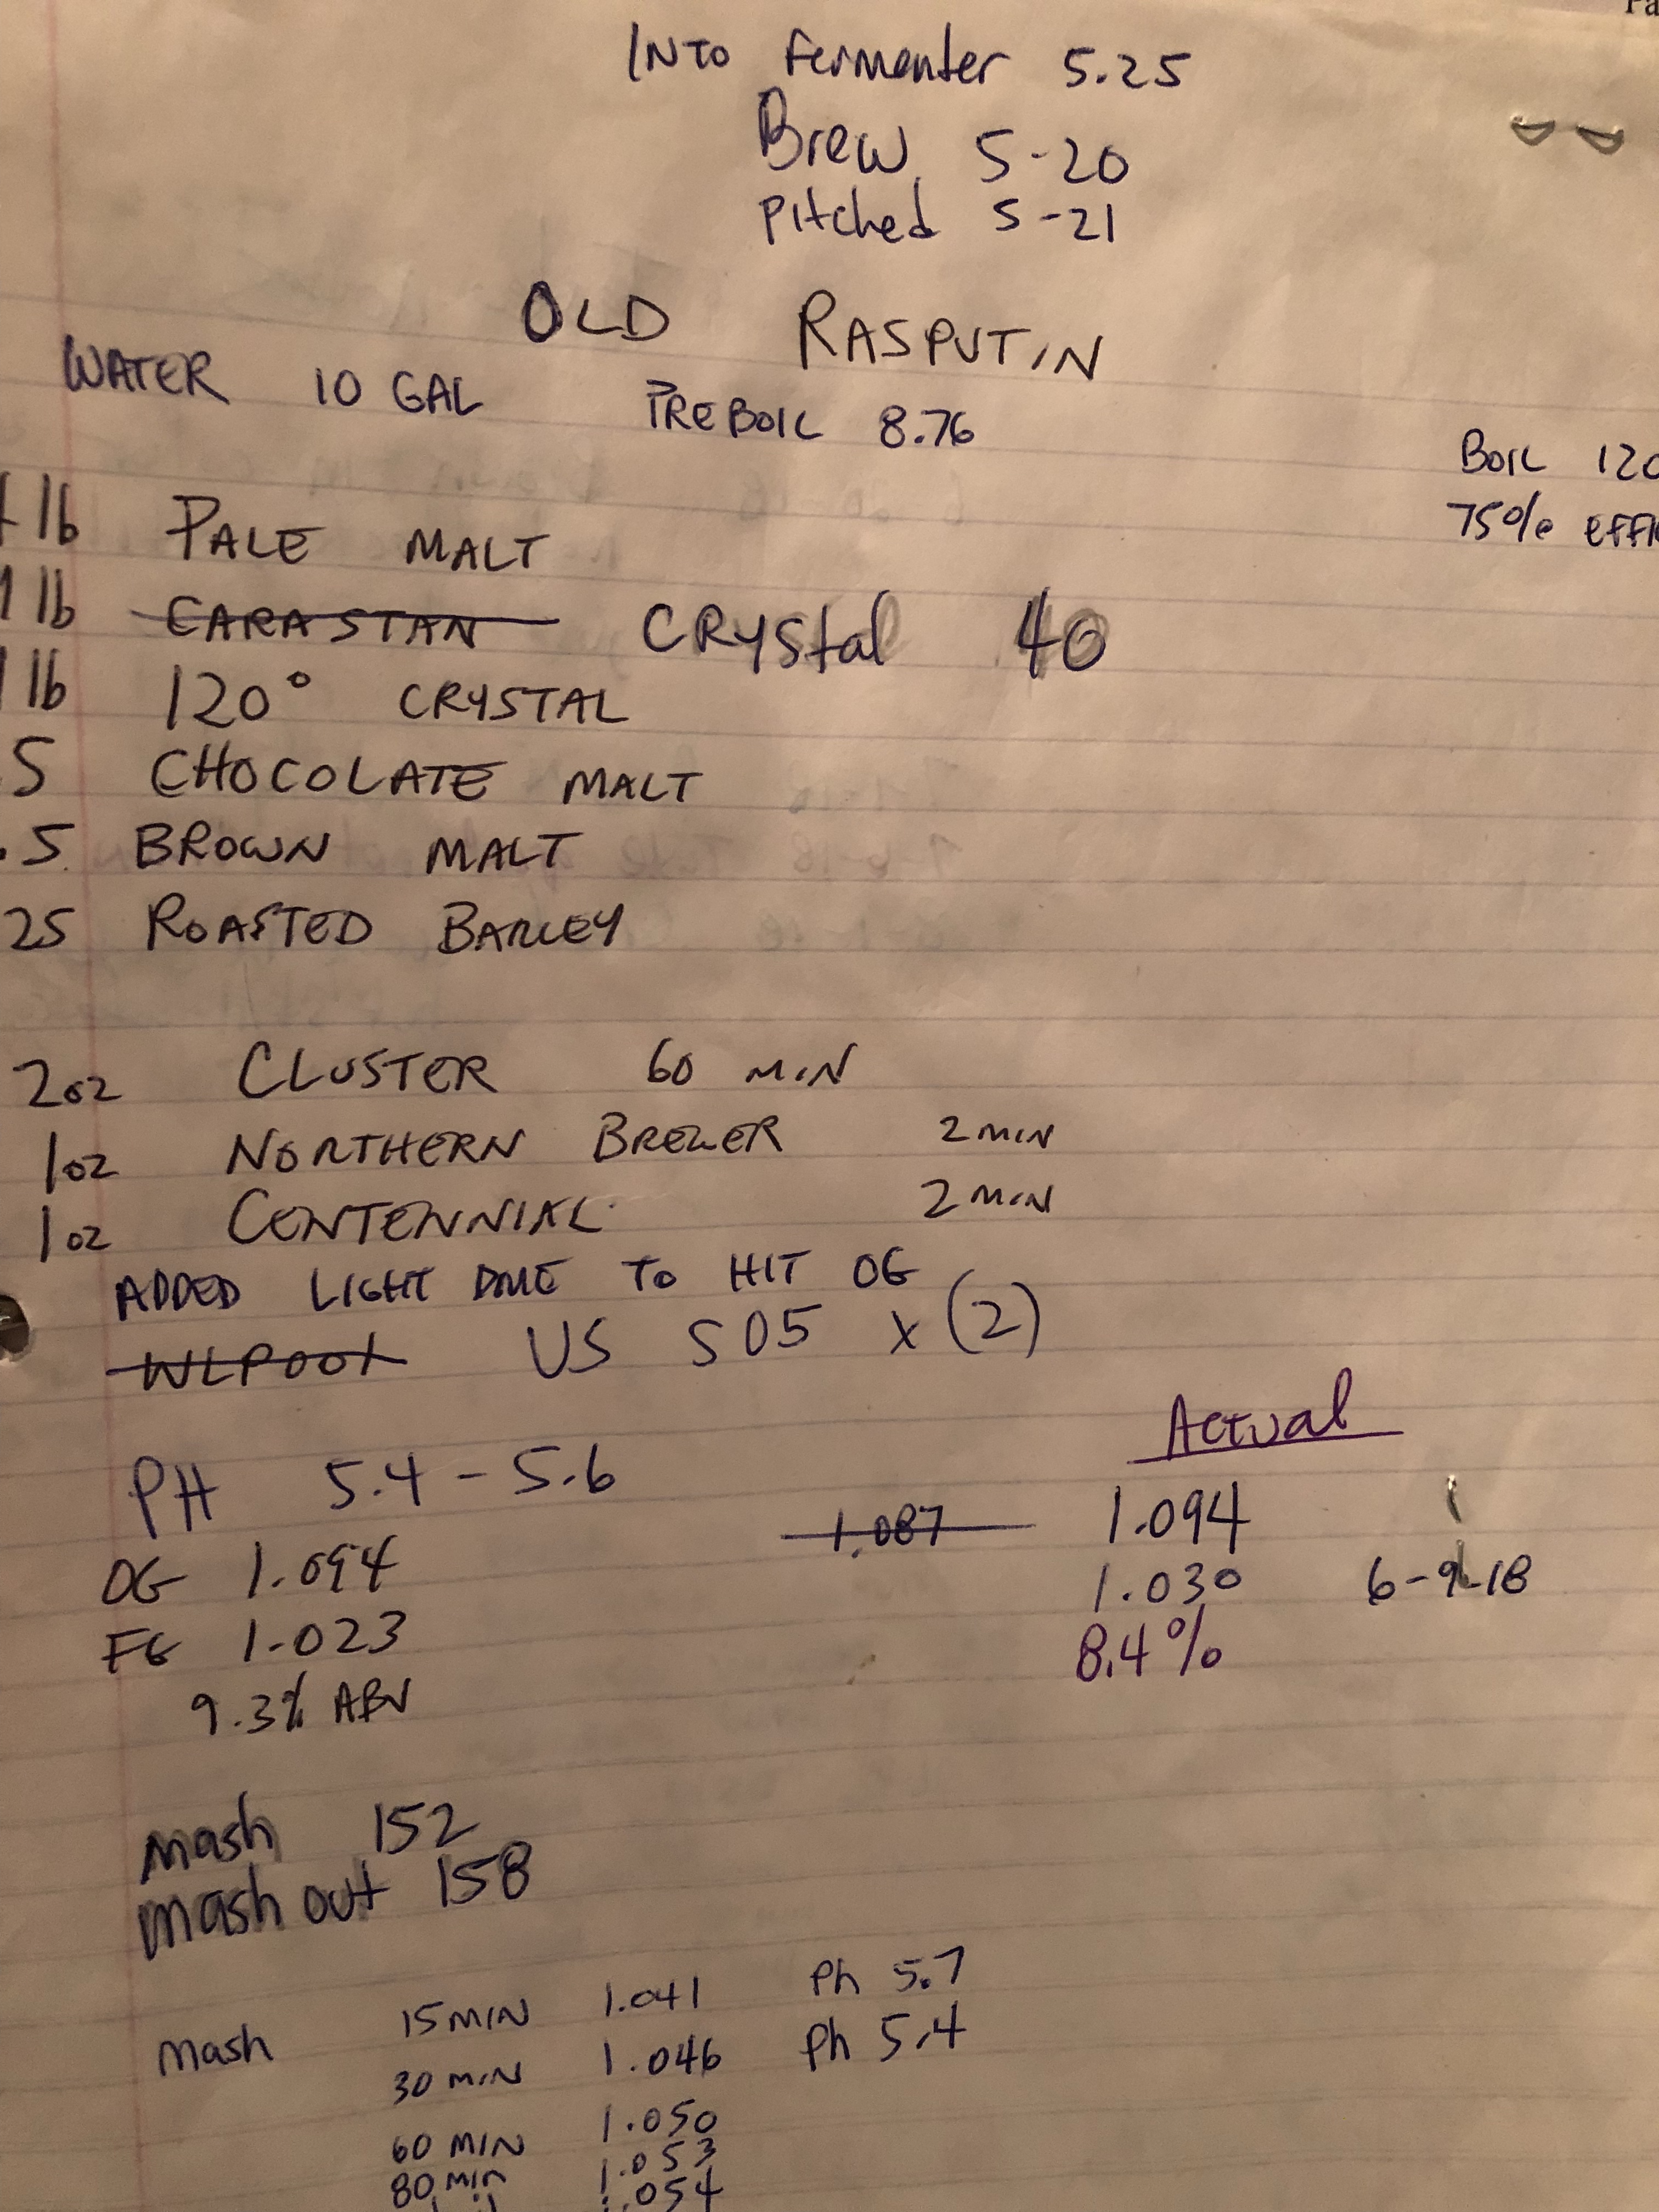 Pa
INTO fermenter 5.25
Brew 5-20
Pitched 5-21
OLD RASPUTIN
WATER 10 GAL PREBOIL 8.76
BOIL 120
75% EFFI
lb PALE MALT
1 lb CARASTAN CRYStal 40
1 lb 120° CRYSTAL
5 CHOCOLATE MALT
.5 BROWN MALT
25 ROASTED BARLEY
2oz CLUSTER 60 MIN
1oz NORTHERN BREWER 2 MIN
1oz CENTENNIAL 2 MIN
ADDED LIGHT DME TO HIT OG
WLP001 US S05 x (2)
Actual
PH 5.4 - 5.6
1.087 1.094
OG 1.094
1.030 6-9-18
FG 1.023
8.4%
9.3% ABV
Mash 152
Mash out 158
Mash 15 MIN 1.041 Ph 5.7
30 MIN 1.046 Ph 5.4
60 MIN 1.050
80 min 1.053
1.054